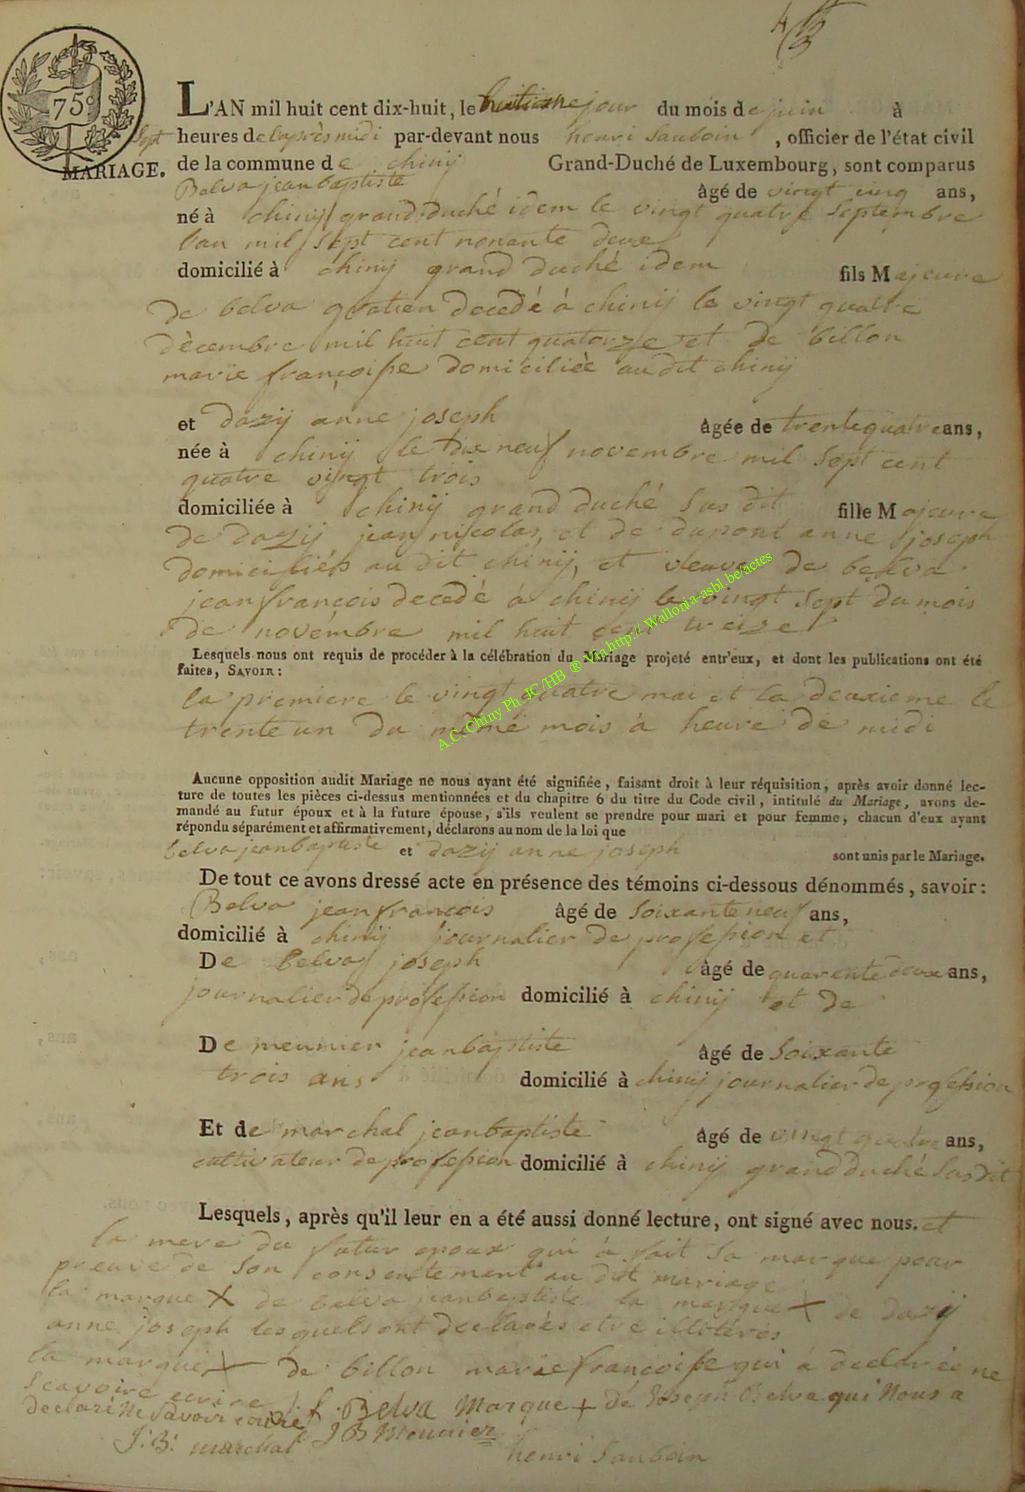 4/13
75c
L'AN mil huit cent dix-huit, le huitieme jour du mois de juin à
sept heures de l'après midi par-devant nous henri Sauboin , officier de l'état civil
MARIAGE. de la commune de chinÿ Grand-Duché de Luxembourg, sont comparus
Belva jean baptiste âgé de vingt cinq ans,
né à chinÿ grand duché idem le vingt quatre septembre
lan mil sept cent nonante deux
domicilié à chinÿ grand duché idem fils Majeure
de belva gratien decedé à chinÿ le vingt quatre
décembre mil huit cent quatorze et de billon
marie françoise domiciliée audit chinÿ
et dazÿ anne joseph âgée de trente quatre ans,
née à chinÿ le dix neuf novembre mil sept cent
quatre vingt trois
domiciliée à chinÿ grand duché susdit fille Majeure
de dazÿ jean niscolas, et de dupont anne joseph
domiciliés audit chinÿ, et veuve de belva
jean françois decedé à chinÿ le vingt sept du mois
de novembre mil huit cent treize
Lesquels nous ont requis de procéder à la célébration du Mariage projeté entr'eux, et dont les publications ont été
faites, SAVOIR:
la premiere le vingt quatre mai et la deuxieme le
trente un du même mois à heure de midi
A.C. Chiny Ph. JC/HB ® Via http://Wallonia-asbl.be/actes
Aucune opposition audit Mariage ne nous ayant été signifiée, faisant droit à leur réquisition, après avoir donné lec-
ture de toutes les pièces ci-dessus mentionnées et du chapitre 6 du titre du Code civil, intitulé du Mariage, avons de-
mandé au futur époux et à la future épouse, s'ils veulent se prendre pour mari et pour femme, chacun d'eux ayant
répondu séparément et affirmativement, déclarons au nom de la loi que
belva jean baptiste et dazÿ anne joseph sont unis par le Mariage.
De tout ce avons dressé acte en présence des témoins ci-dessous dénommés, savoir:
Belva jean françois âgé de soixante neuf ans,
domicilié à chinÿ journalier de profession et
De belva joseph âgé de quarente deux ans,
journalier de profession domicilié à chinÿ et de
De meunier jean baptiste âgé de soixante
trois ans domicilié à chinÿ journalier de profession
Et de marchal jean baptiste âgé de vingt quatre ans,
cultivateur de profession domicilié à chinÿ grand duché susdit
Lesquels, après qu'il leur en a été aussi donné lecture, ont signé avec nous. et
la mere du futur epoux qui à fait sa marque pour
preuve de son consentement au dit mariage
la marque X de belva jean baptiste la marque X de dazÿ
anne joseph lesquels ont declarés etre illiterés
la marque X de billon marie françoise qui à declarée ne
scavoire ecrire J. f. Belva Marque + de Joseph Belva qui Nous a
declaré Ne Savoir ecrire
J. B. marchal J B Meunier
henri Sauboin